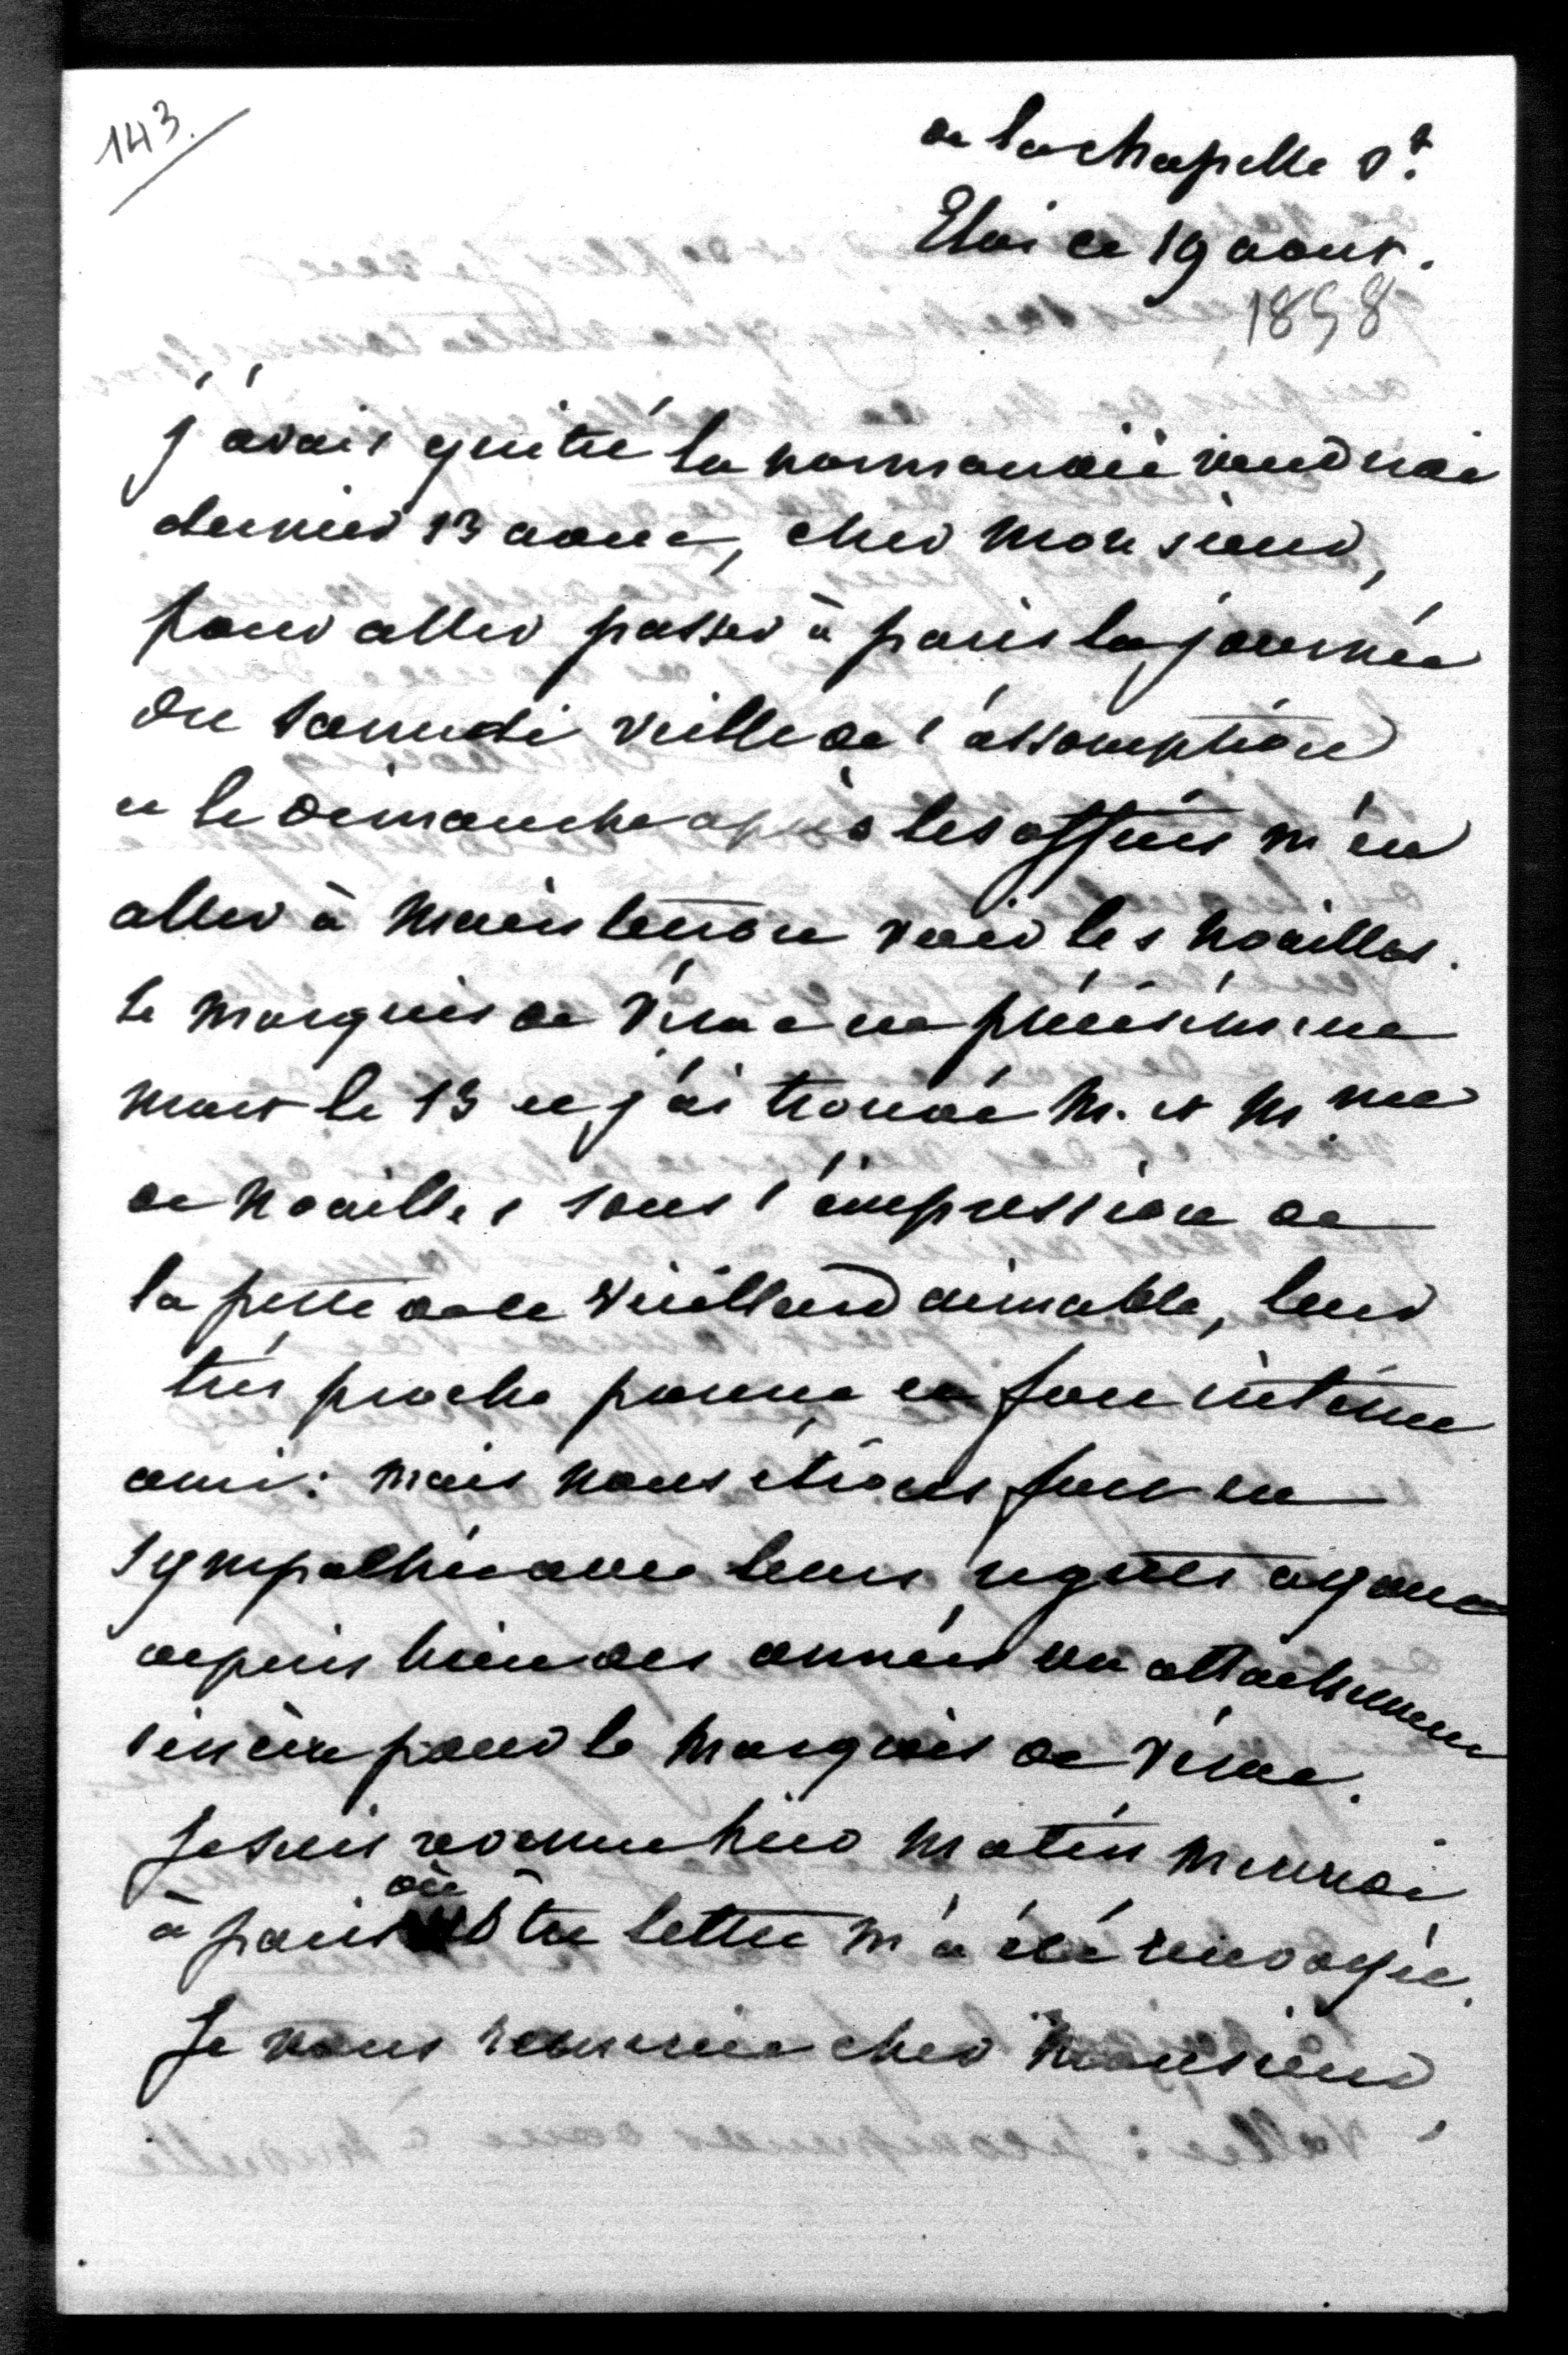 143.
de la chapelle St.
Eloi ce 19 aout.
1858
j'avais quitté la normandie vendredi
dernier 13 aout, cher monsieur,
pour aller passer à paris la journée
du samedi veille de l'assomption
et le dimanche après les offices m'en
aller à maintenon voir les noailles.
le marquis de Vérac est précisément
mort le 13 et j'ai trouvé M. et Mme
de noailles sous l'impression de
la perte de ce vieillard aimable, leur
très proche parent et fort intime
ami: mais nous étions fort en
sympathie avec leurs regrets ayant
depuis bien des années un attachement
sincère pour le marquis de Vérac.
Je suis revenue hier matin mercredi
à paris où vôtre lettre m'a été renvoyée.
Je vous remercie cher Monsieur,